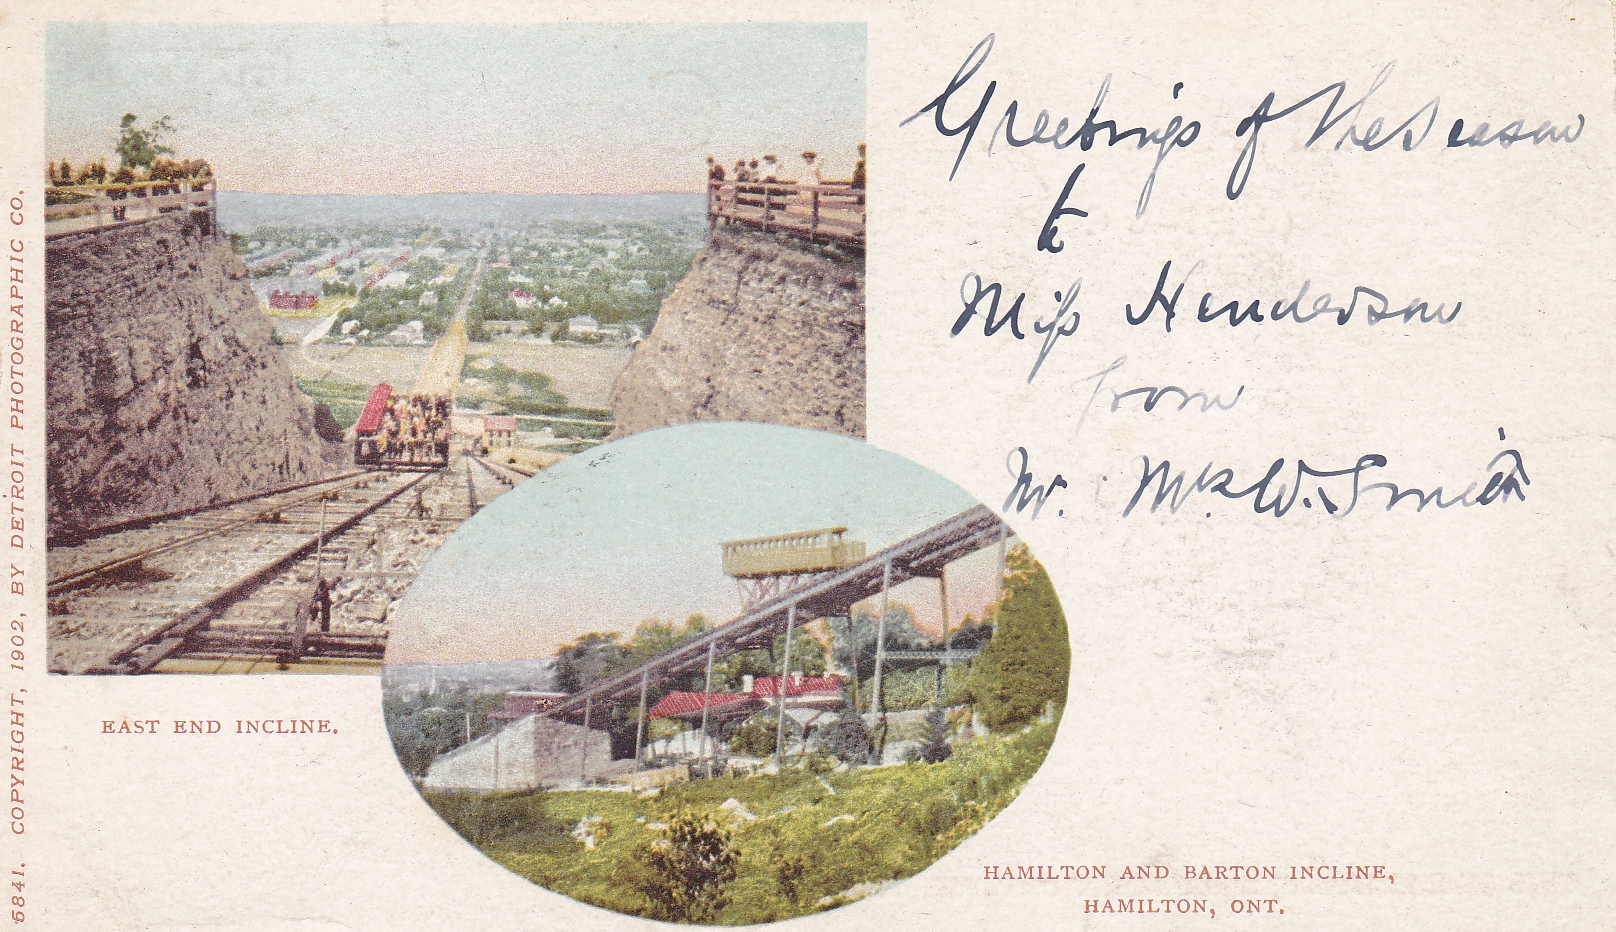 5841. COPYRIGHT, 1902, BY DETROIT PHOTOGRAPHIC CO.
Greetings of the Season
to
Miss Henderson
from
Mr. W. Smith
EAST END INCLINE.
HAMILTON AND BARTON INCLINE,
HAMILTON, ONT.